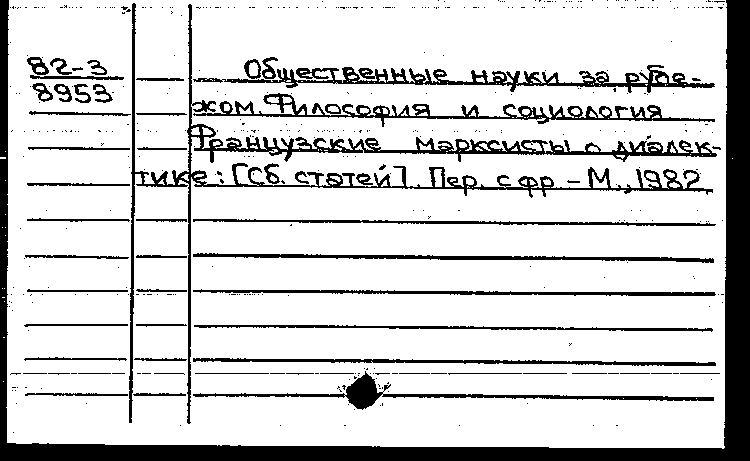 82-3
8953
Общественные науки за рубе-
жом. Философия и социология
Французские марксисты о диалек-
тике: [Сб. статей]. Пер. с фр. - М., 1982